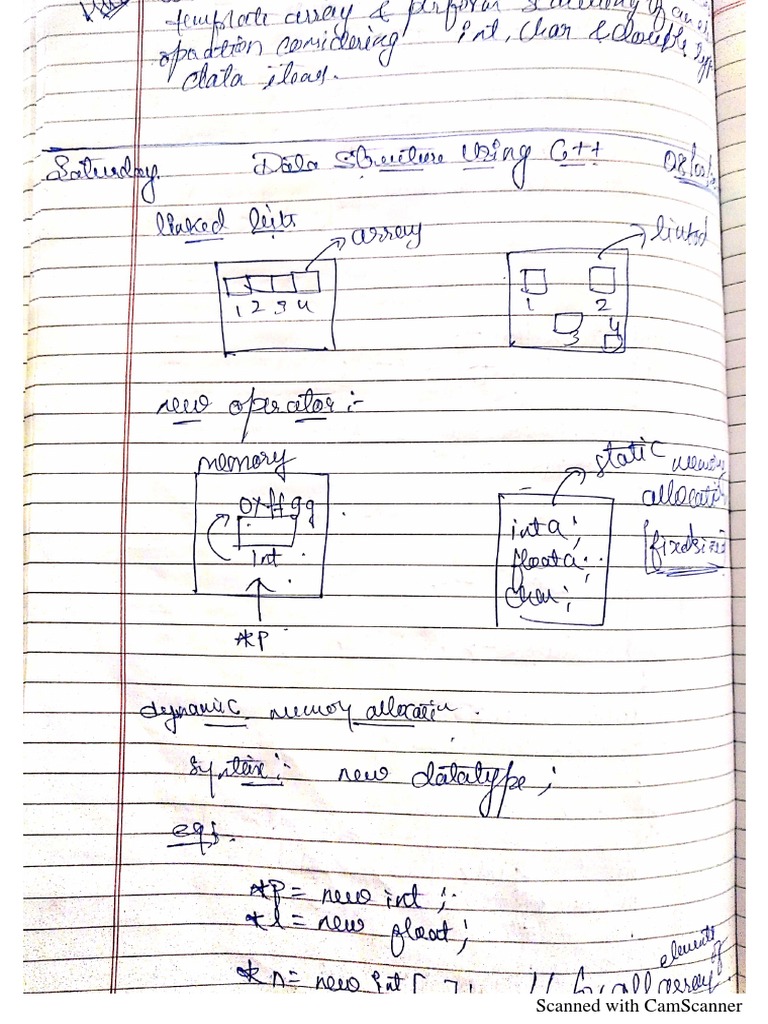 template array & perform
operation considering int, char & double type
data items.
Saturday Data Structure Using C++ 08/
linked list
array
linked
1 2 3 4
1 2
3 4
new operator :-
memory
static memory
allocation
0xffgg
int a;
(fixed size)
int
float a;
char;
*P
dynamic memory allocation.
Syntax :- new datatype ;
egs.
*P = new int ;
*l = new float ;
elements of
*n = new int [ ]; // for all array
Scanned with CamScanner